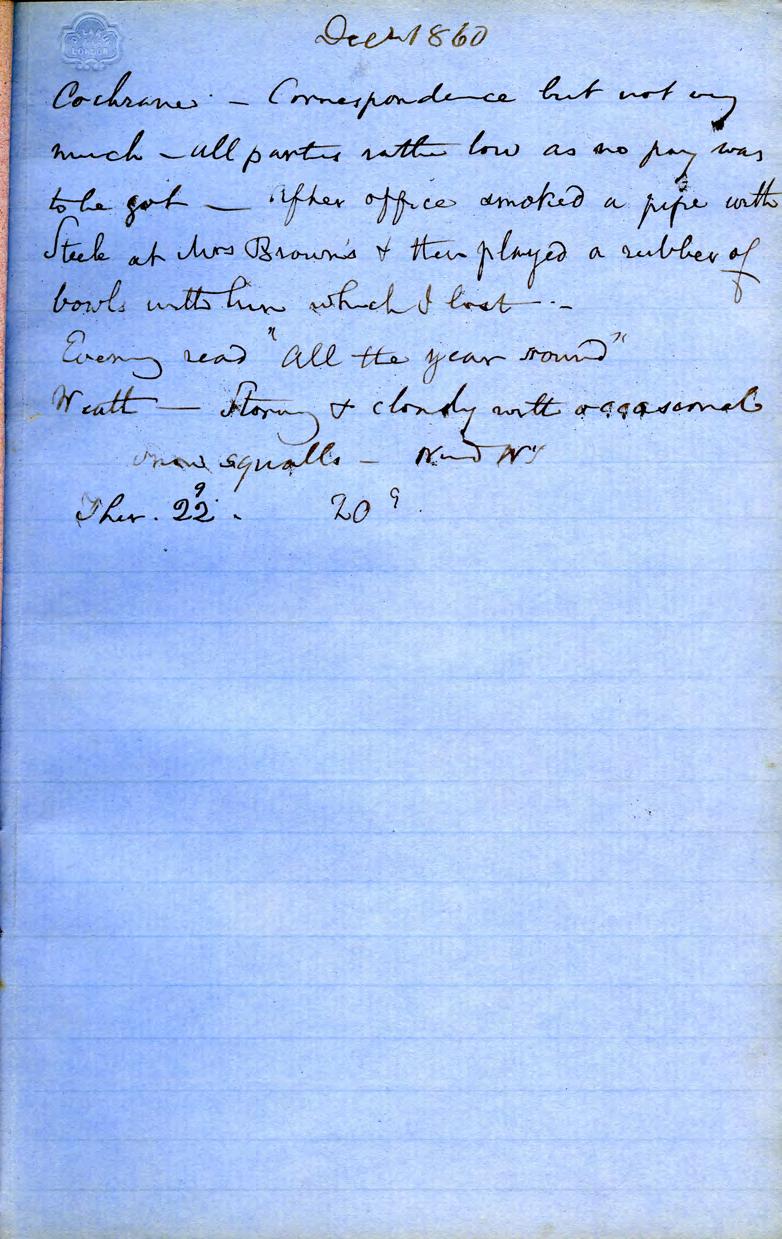 Decr 1860
Cochrane - Correspondence but not very
much - all parties rather low as no pay was
to be got — After office smoked a pipe with
Steele at Mrs Brown's & then played a rubber of
bowls with him which I lost -
Evening read "All the year round"
Weath — Stormy & cloudy with occasional
snow squalls - Wind Wy
Ther. 22°. 20°.
LONDON